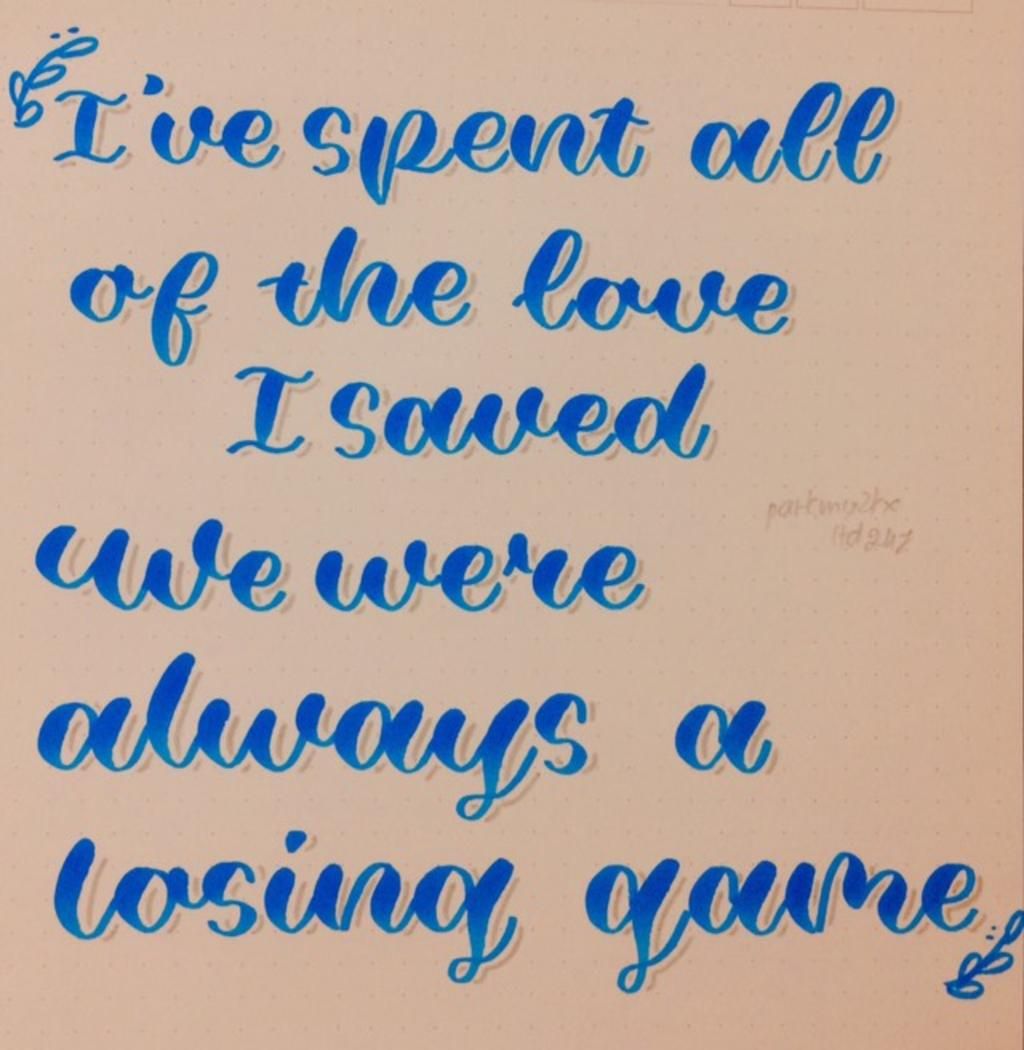 I've spent all
of the love
I saved
We were
always a
losing game